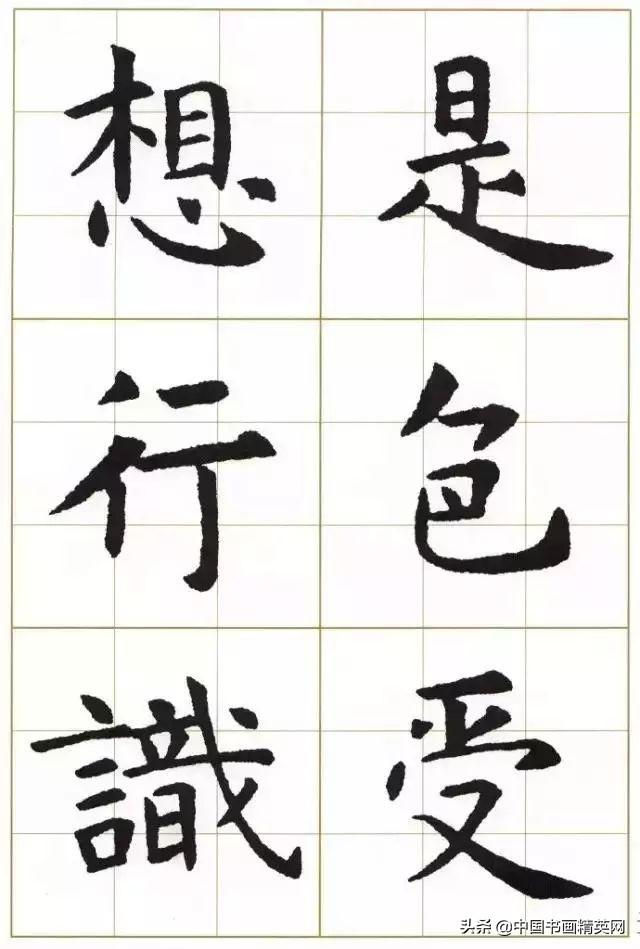 是色受
想行識
头条 @中国书画精英网